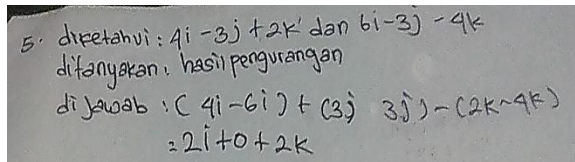 5. diketahui : 4i - 3j + 2k dan 6i - 3j - 4k
ditanyakan : hasil pengurangan
di jawab : ( 4i - 6i ) + (3j 3j ) - (2k - 4k)
= 2i + 0 + 2k